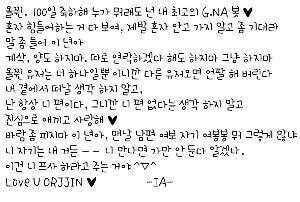 올찐. 100일 축하해 누가 뭐래도 넌 내 최고의 G.NA 봊 ♥
혼자 힘들어하는 거 다 보여. 제발 혼자 안고 가지 말고 좀 기대라
말 좀 들어 이 년아
계산, 양도 하지마. 따로 연락하겠다 해도 하지마 그냥 하지마
올찐 유저는 너 하나일뿐 이니깐 다른 유저오면 연탈 해 버린다
내 곁에서 떠날 생각 하지 말고.
난 항상 니 편이다. 그니깐 니 편 없다는 생각 하지 말고
진심으로 애끼고 사랑해 ♥
바람 좀 피지마 이 년아. 맨날 남편 여보 자기 여봉봉 뭐 그렇게 많냐
니 자기는 내 거든 - - 니 만나면 가만 안둔다 알겠냐.
이건 니 프사 하라고 주는 거야 ^▽^
Love U ORJJIN ♥ -JA-